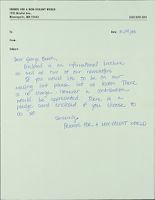 FRIENDS FOR A NON-VIOLENT WORLD
1925 Nicollet Ave.
Minneapolis, MN 55403
To:
Date
From:
Subject:
Dear George Beach,
Enclosed is an informational brochure
as well as two of our newsletters.
If you would like to be on our
mailing list please let us know. There
is no charge. However a contribution
would be appreciated. There is a
pledge card enclosed if you choose to
do so.
Sincerely,
FRIENDS FOR A NON-VIOLENT WORLD